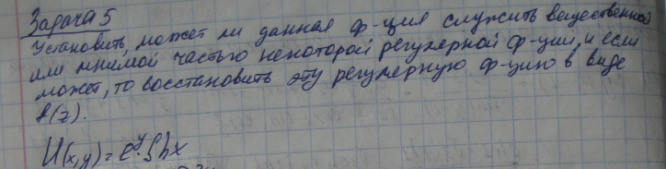 Задача 5
Установить, может ли данная ф-ция служить вещественной
или мнимой частью некоторой регулярной ф-ции, и если
может, то восстановить эту регулярную ф-цию в виде
f(z).
U(x,y)=e^y·Shx